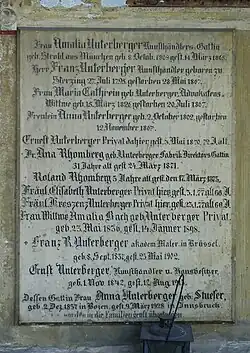 Frau Amalia Unterberger Kunsthändlers Gattin
geb. Strobl aus München geb. 8. Octob. 1809 gest. 14. März 1863.
Herr Franz Unterberger Kunsthändler geboren zu
Sterzing 27. Juli 1795 gestorben 28. Mai 1867.
Frau Maria Cathrein geb. Unterberger, Advokatens
Wittwe geb. 15. März 1828 gestorben 20. Juli 1867.
Freulein Anna Unterberger geb. 2. October 1802, gestorben
12. November 1867.
Ernest Unterberger Privat dahier, gest. 5. Mai 1870, 72 J. alt.
Fr. Ana Rhomberg, geb. Unterberger Fabrik Direktors Gattin
31 Jahre alt gest. 24. März 1871.
Roland Rhomberg 3 Jahre alt gest. 17. März 1875,
Fräul. Elisabeth Unterberger Privat hier, gest. 5.1.77. alt 68 J.
Fräul. Kreszenz Unterberger Privat. hier, gest. 25.1.77. alt 63 J.
Frau Wittwe Amalia Bach geb. Unterberger Privat.
geb. 23. Mai 1836, gest. 14. Jänner 1898.
Franz R. Unterberger akadem Maler in Brüssel.
geb. 8. Sept. 1837, gest. 25. Mai 1902.
Ernst Unterberger Kunsthändler u. Hausbesitzer,
geb. 1. Nov. 1842, gest. 12. Aug.
Dessen Gattin Frau Anna Unterberger geb. Stueser,
geb. 2. Dez. 1857 in Bozen, gest. 9. März 1928 in Innsbruck.